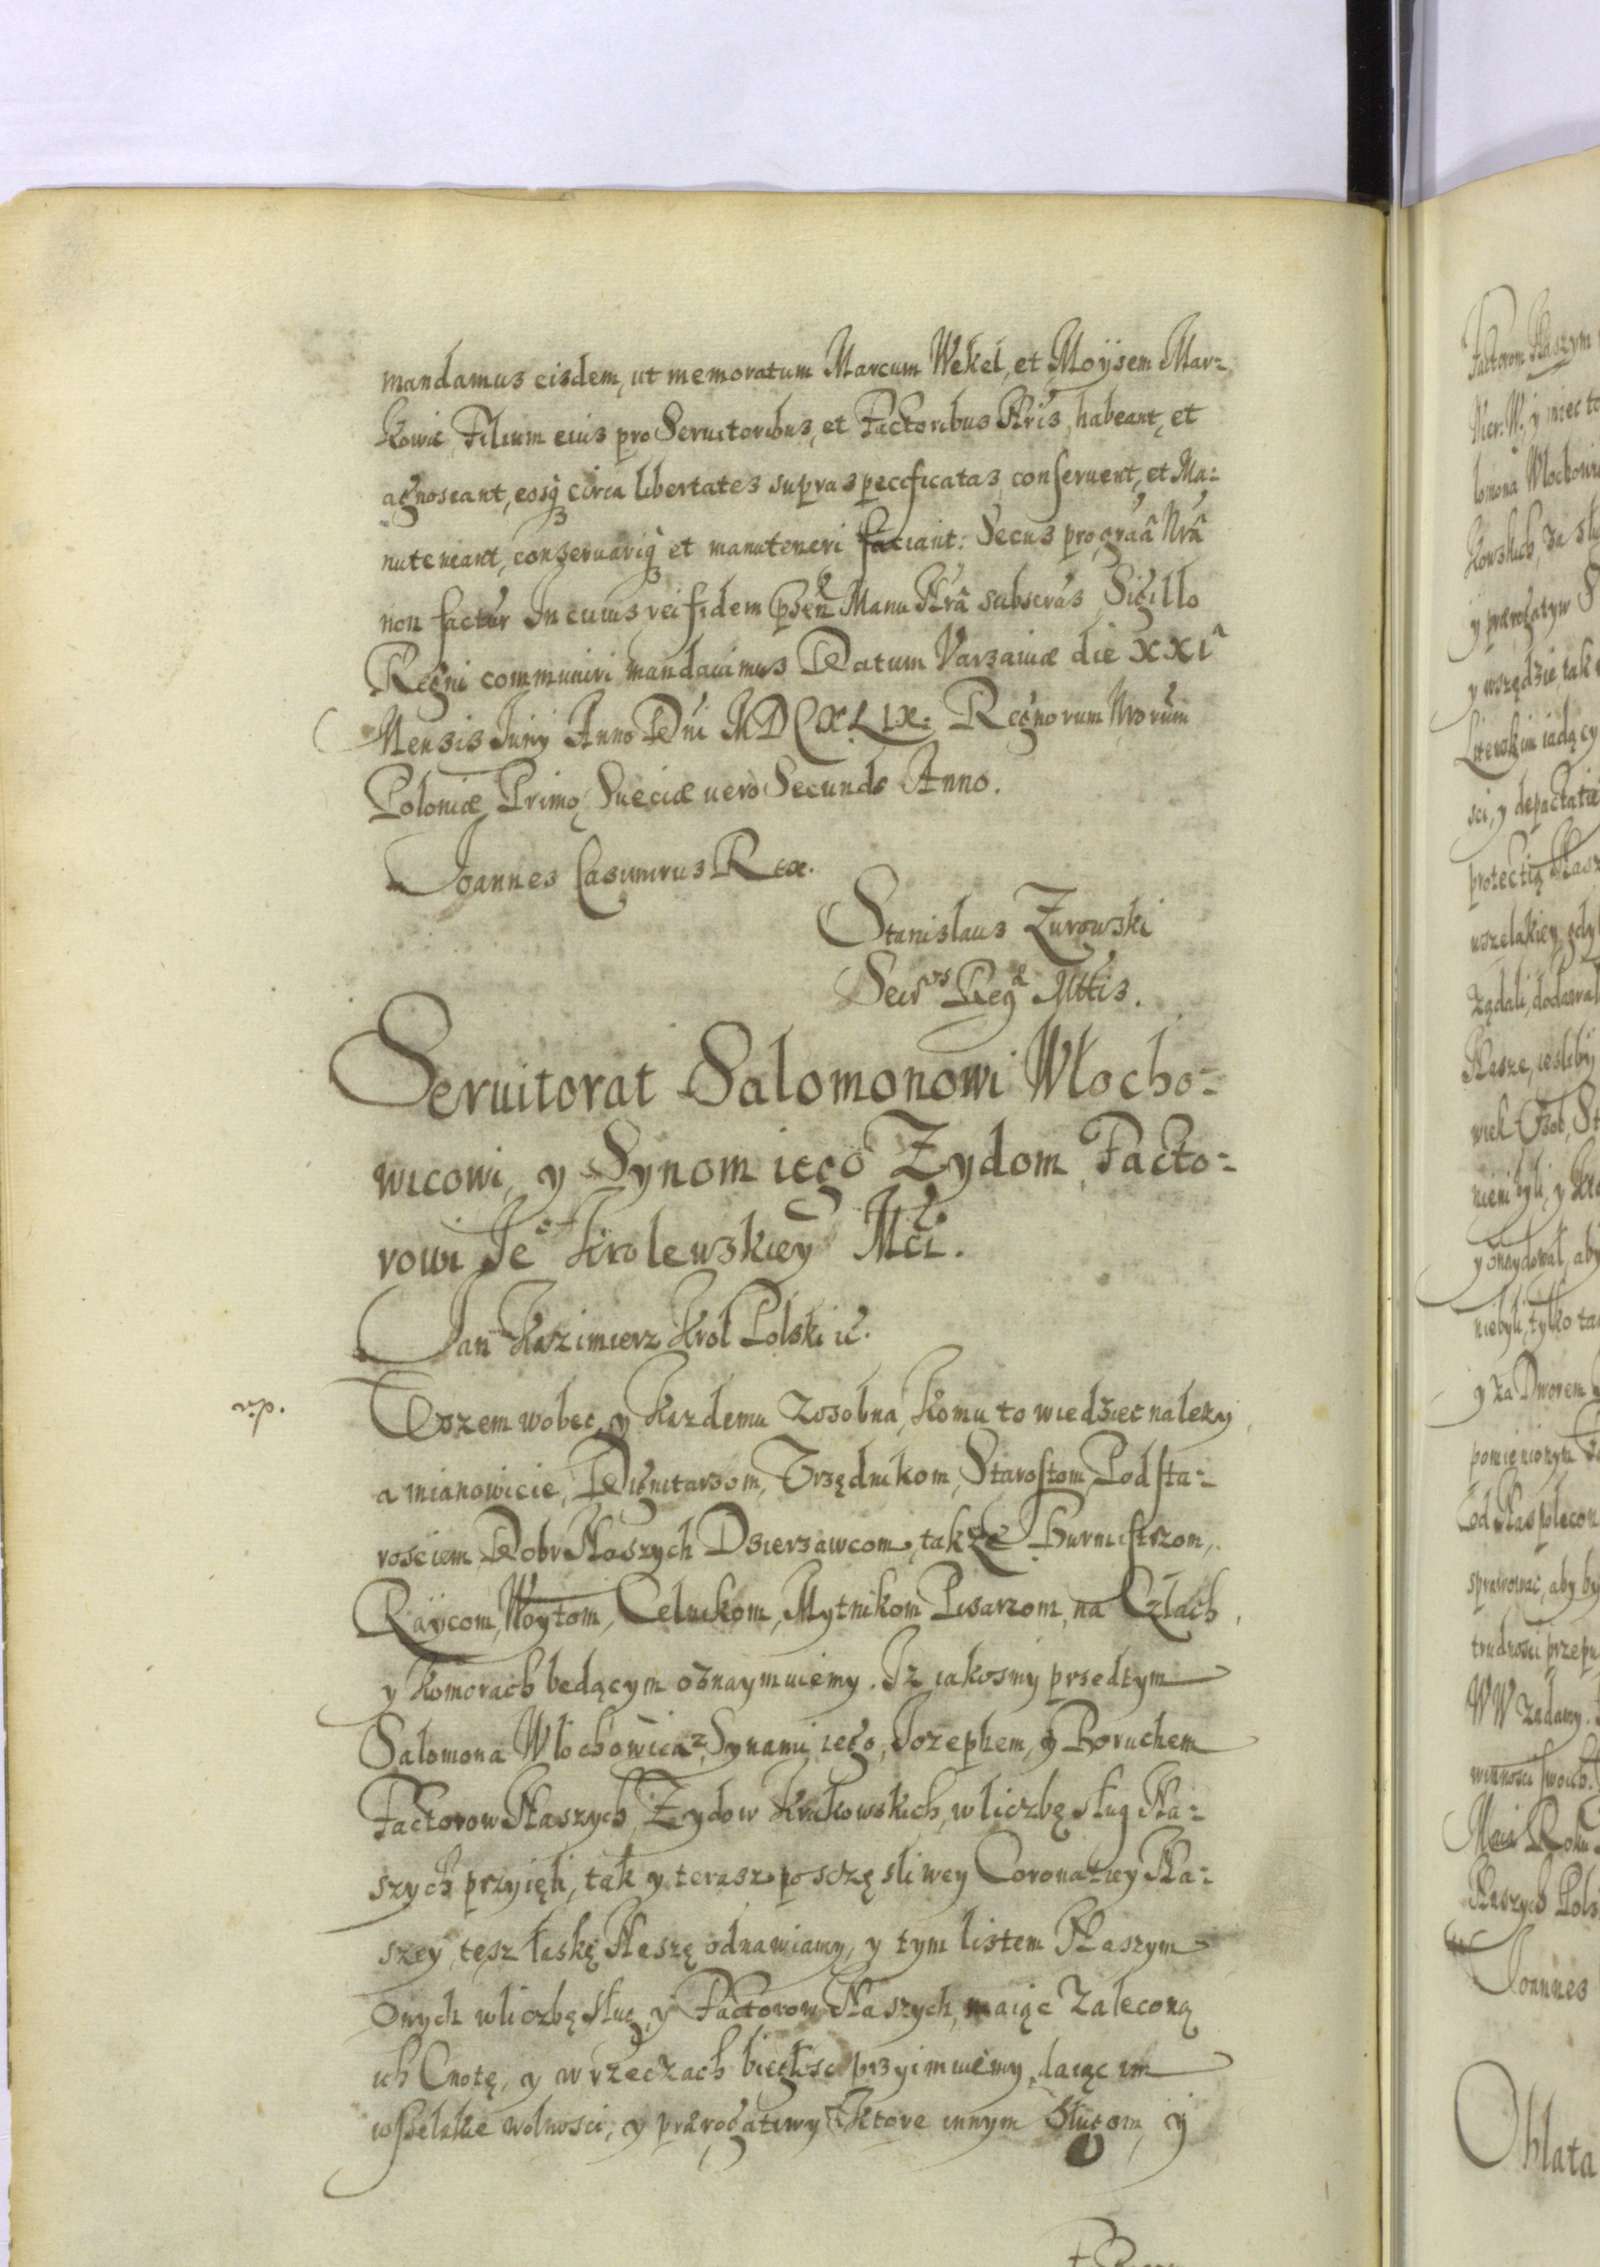 mandamus eisdem, ut memoratum Marcum Wekel, et Moÿsem Mar-
kowic Filium eius pro Seruitoribus, et Factoribus Nris, habeant, et
agnoscant, eosq circa libertates supraspecificatas conseruent, et Ma-
nuteneant, conseruariq et manuteneri faciant: Secus pro graâ Nrâ
non factur In cuius rei fidem psen Manu Nrâ subscras Sigillo
Regni communiri mandauimus Datum Varsauiæ die XXIª
Mensis Junÿ Anno Dni MDCXLIX: Regnorum Nrorum
Poloniæ Primo, Sueciæ uero Secundo Anno.
Joannes Casimirus Rex.
Stanislaus Zurowski
Secr Reg Mttis.
Seruitorat Salomonowi Włocho-
wicowi, y Synom iego Zydom Facto-
rowi Je° Krolewskiey Mci.
Jan Kazimierz Krol Polski ic.
rp.
Wszem wobec, y Kazdemu Zosobna, Komu to wiedziec nalezy
a mianowicie, Dignitarzom, Vrzędnikom, Starostom Podsta-
rosciem Dobr Naszych Dzierzawcom, także Burmistrzom,
Raycom, Woytom, Celnikom, Mytnikom Pisarzom, na Cłach,
y Komorach będącym oznaymuiemy. Iz iakosmy przedtym
Salomona Włochowica z Synami iego, Jozephem, y Boruchem
Factorow Naszych, Zydow Krakowskich, w liczbę sług Na-
szych przyięli, tak y terasz po sczęsliwey Coronatiey Na-
szey, tęsz łaskę Naszę odnawiamy, y tym listem Naszym
Onych w liczbę sług, y Factorow Naszych, maiąc Zaleconą
ich Cnotę, y w rzeczach biegłosc przyimuiemy, daiąc im
wszelakie wolnosci, y prærogatiwy Ktore innym Sługom, y
Factorom Naszym
y prærogatyw
y wszędzie, tak
Literskim iadący
sci, y depactatie
protectią Nasz
wszelakiey, gdy
Nasze, iesliby
wiek Osob, St
niebyli, tylko ta
y za Dworem
pomienionym
od Nas poleco
sprawować, aby by
trudnosci przepu
WW Ządamy.
Maia Roku
Naszych Pols
Joannes
Oblata